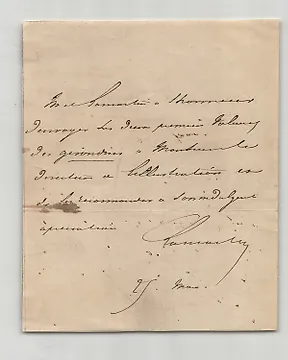 Lamartine a l'honneur
d'envoyer les deux premiers volumes
des girondins à Monsieur le
directeur de l'Illustration et
de les recommander à son indulgente
appréciation
Lamartine
25 Mars